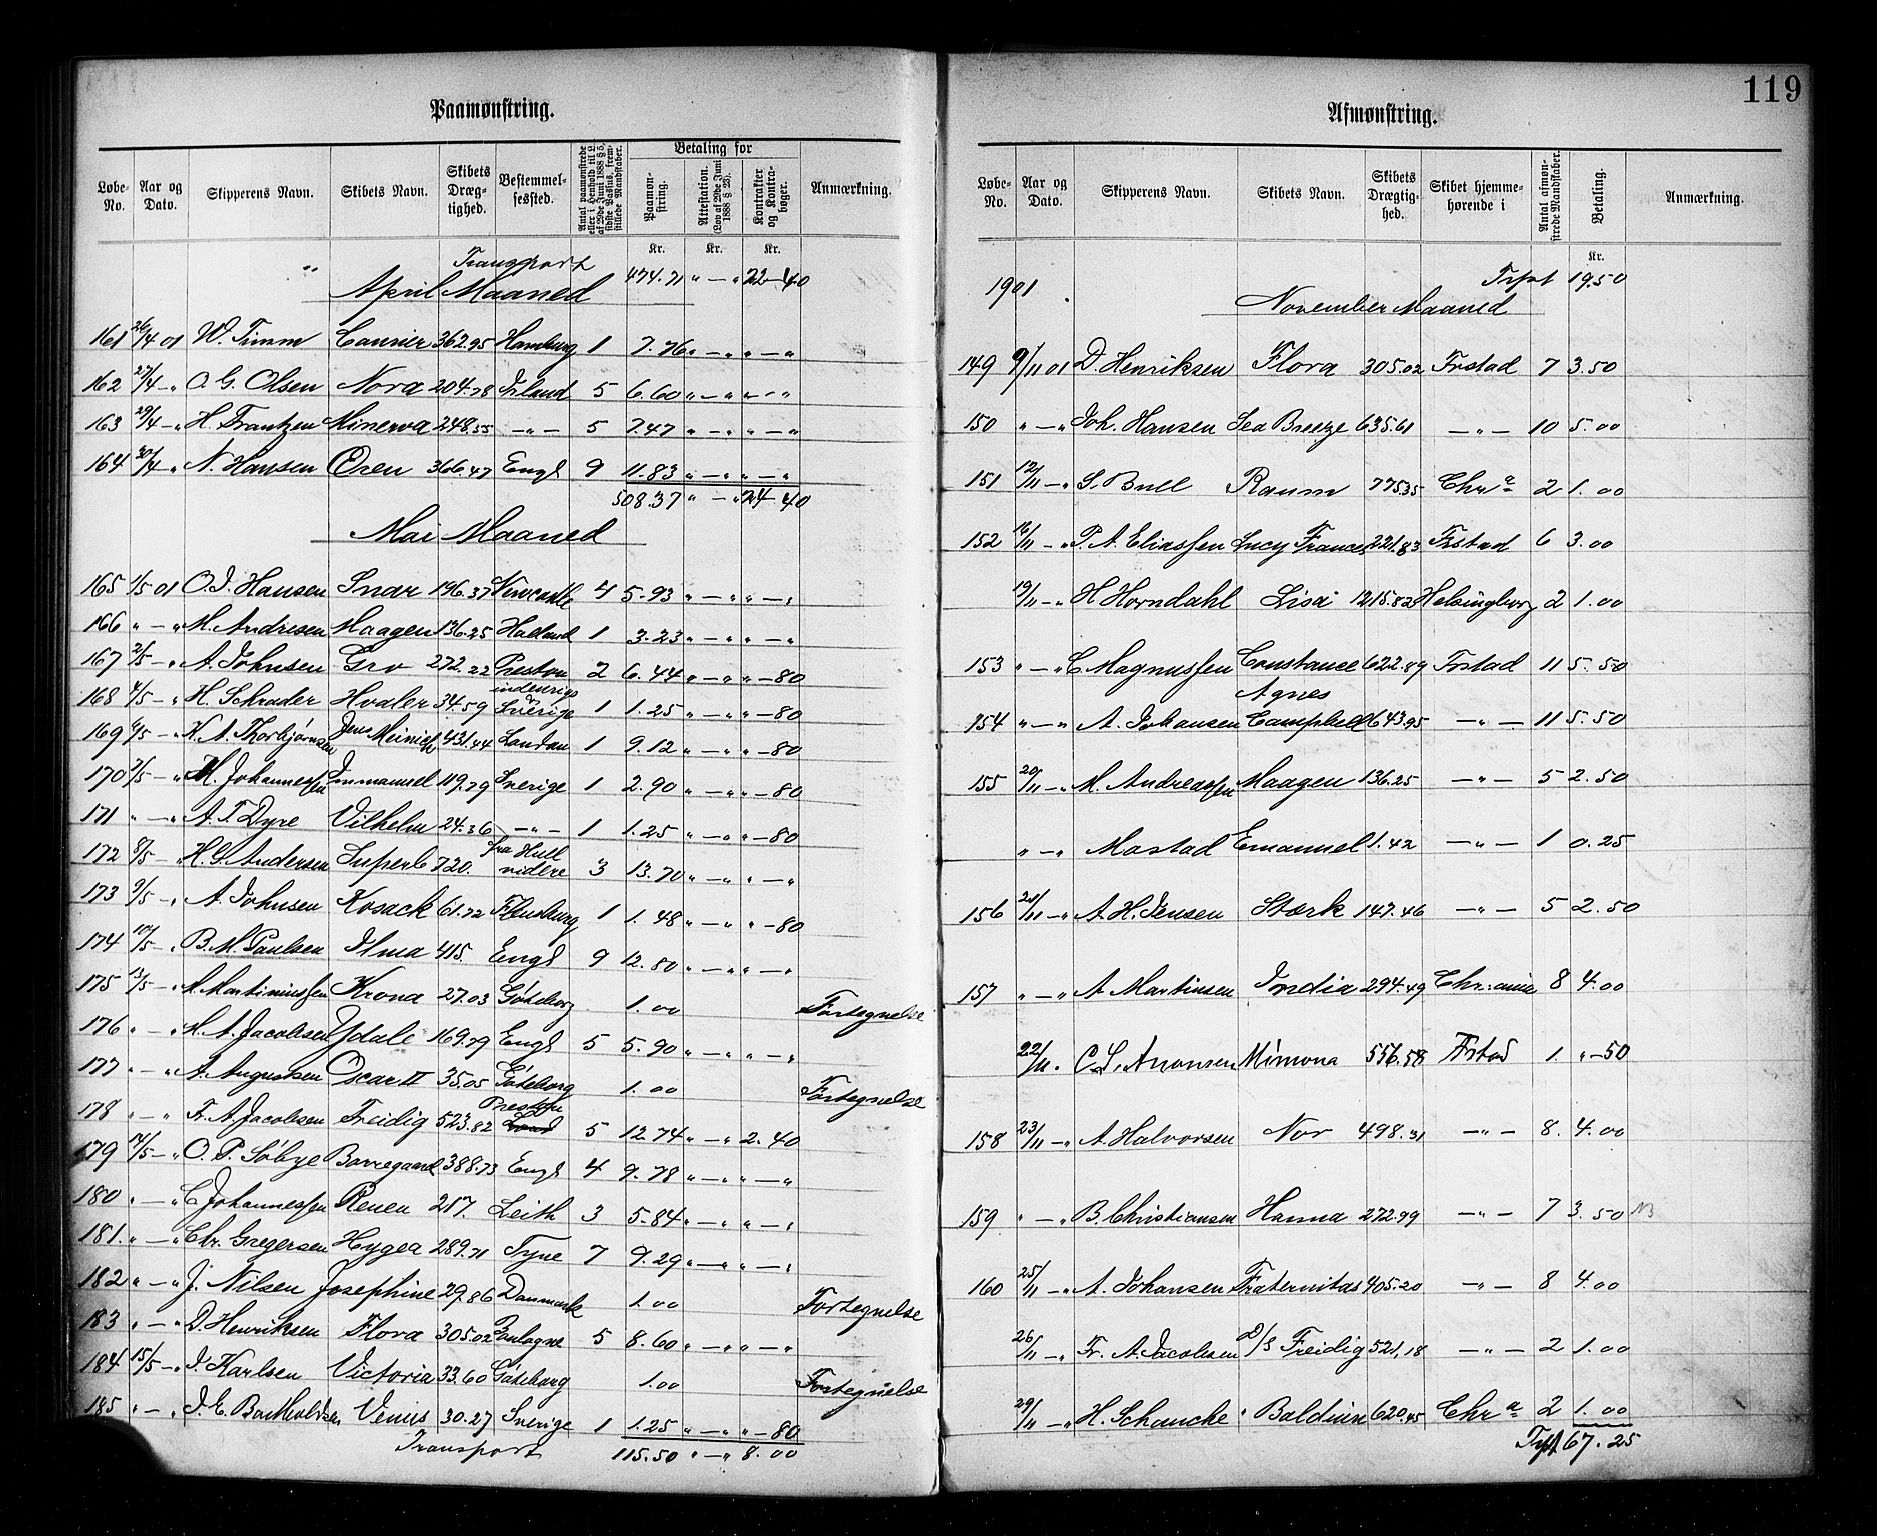 119
Paamønstring.
Løbe-No. Aar og Dato. Skipperens Navn. Skibets Navn. Skibets Dræg-tighed. Bestemmel-sessted. Antal paamønstrede eller i Henhold til L. af 29de Juni 1888 § 5, sidste Passus, frem-stillede Mandskaber. Betaling for Paamøn-string. Attestation. (Lov af 29de Juni 1888 § 25). Kontrakter og Kontra-bøger. Anmærkning.
Kr. Kr. Kr.
" Transport 474.71 " — " 22-40
April Maaned
161 26/4 01 W. Timm Courier 362.95 Hamburg 1 7.76 " — " " — "
162 27/4 - " O. G. Olsen Nora 204.78 Irland 5 6.60 " — " " — "
163 29/4 - " H. Frantzen Minerva 248.55 — " — 5 7.47 " — " " — "
164 30/4 " N. Hansen Oxen 366.47 Engl 9 11.83 " — " " — "
508.37 " — " 24-40
Mai Maaned
165 1/5 01 O. J. Hansen Snar 196.37 Newcastle 4 5.93 " — " " — "
166 " — " M. Andresen Maagen 136.25 Holland 1 3.23 " — " " — "
167 2/5 - " A. Johnsen Gro 272.22 Preston 2 6.44 " — " " — 80
168 4/5 - " H. Schrader Hvaler 34.59 indenrigs Sverige 1 1.25 " — " " — 80
169 6/5 - " K. A. Thorbjørnsen Jens Meinich 431.44 London 1 9.12 " — " " — 80
170 7/5 - " M. Johannessen Immanuel 119.79 Sverige 1 2.90 " — " " — 80
171 " — " A. T. Dyre Vilhelm 24.36 — " — 1 1.25 " — " " — 80
172 8/5 - " H. G. Andersen Superb 720. fra Hull videre 3 13.70 " — " " — "
173 9/5 - " A. Johnsen Kosack 61.72 Flensburg 1 1.48 " — " " — 80
174 10/5 - " B. M. Paulsen Ilma 415. Engl 9 12.80 " — " " — "
175 13/5 - " M. Martiniussen Krona 27.03 Göteborg 1.00 Fortegnelse
176 " — " H. A. Jacobsen Ydale 169.79 Engl 5 5.90 " — " " — "
177 " — " A. Augustsen Oscar II 35.05 Göteborg 1.00 Fortegnelse
178 " — " Fr. A. Jacobsen Freidig 523.82 Preston 5 12.74 " — " 2.40
179 14/5 - " O. P. Söbye Borregaard 388.73 Engl 4 9.78 " — " " — "
180 " — " C. Johannessen Renen 217. Leith 3 5.84 " — " " — "
181. " — " Chr. Gregersen Hygea 289.71 Tyne 7 9.29 " — " " — "
182 " — " J. Nilsen Josephine 29.86 Danmark 1.00 Fortegnelse
183 " — " D. Henriksen Flora 305.02 Boulogne 5 8.60 " — " " — "
184 15/5 - " J. Karlsen Victoria 33.60 Göteborg 1.00 Fortegnelse
185 " — " J. E. Bartholdsen Venus 30.27 Sverige 1 1.25 " — " " — 80
Transport 115.50 " — " 8.00
Afmønstring.
Løbe-No. Aar og Dato. Skipperens Navn. Skibets Navn. Skibets Drægtig-hed. Skibet hjemme-hørende i Antal afmøn-strede Mandskaber. Betaling. Anmærkning.
Kr.
1901 Trpt 19.50
November Maaned
149 9/11 01 D. Henriksen Flora 305.02 Frstad 7 3.50
150 " — " Joh. Hansen Sea Breeze 635.61 — " — 10 5.00
151 12/11 - " S. Bull Raum 775.35 Chra 2 1.00
152 16/11 - " P. A. Eliassen Lucy Frances 221.83 Frstad 6 3.00
19/11 - " H Horndahl Lisa 1215.82 Helsingborg 2 1.00
153 " — " C Magnussen Constance 622.89 Frstad 11 5.50
154 " — " A. Johansen Agnes Campbell 643.95 — " — 11 5.50
155 20/11 - " M. Andreassen Maagen 136.25 — " — 5 2.50
" — " Mastad Emanuel 1.42 — " — 1 0.25
156 21/11 - " A. H. Jensen Stærk 147.46 — " — 5 2.50
157 " — " A. Martinsen India 294.49 Chr:ania 8 4.00
22/11. C. S. Anonsen Mimona 556.58 Frstad 1. " - 50
158 23/11 - " A. Halvorsen Nor 498.31 — " — 8. 4.00
159 " — " B. Christiansen Hanna 272.99 — " — 7 3.50 NB
160 25/11 - " A. Johansen Fraternitas 405.20 — " — 8 4.00
26/11 - " Fr. A. Jacobsen D/S Freidig 521,18 — " — 2 1.00
29/11 - " H. Schancke Balduin 620.45 Chra 2 1.00
Trpt 67.25